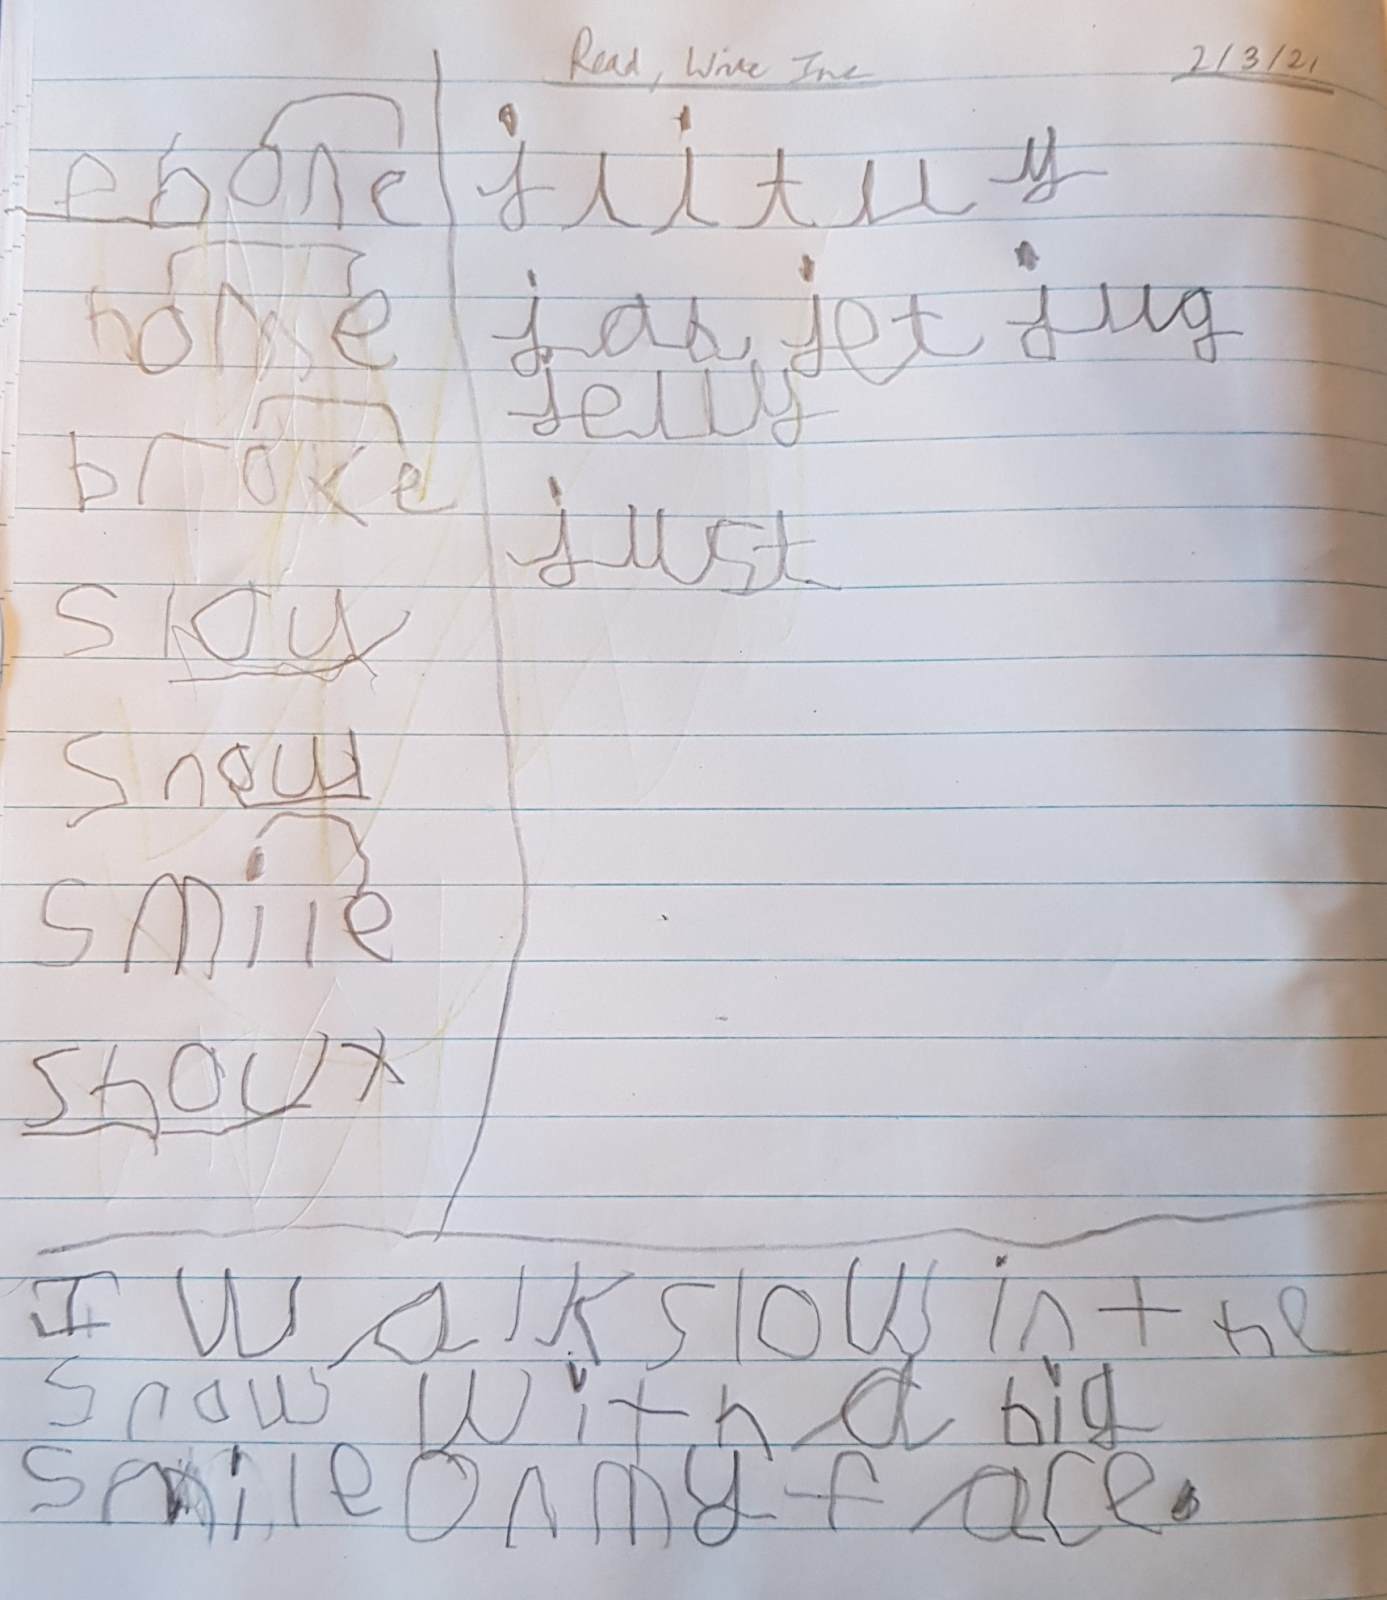 Read, Write Inc 2/3/21
phone
home
broke
slow
snow
smile
shout
j l i t u y
jar jet jug
jelly
just
I walk slow in the
snow with a big
smile on my face.